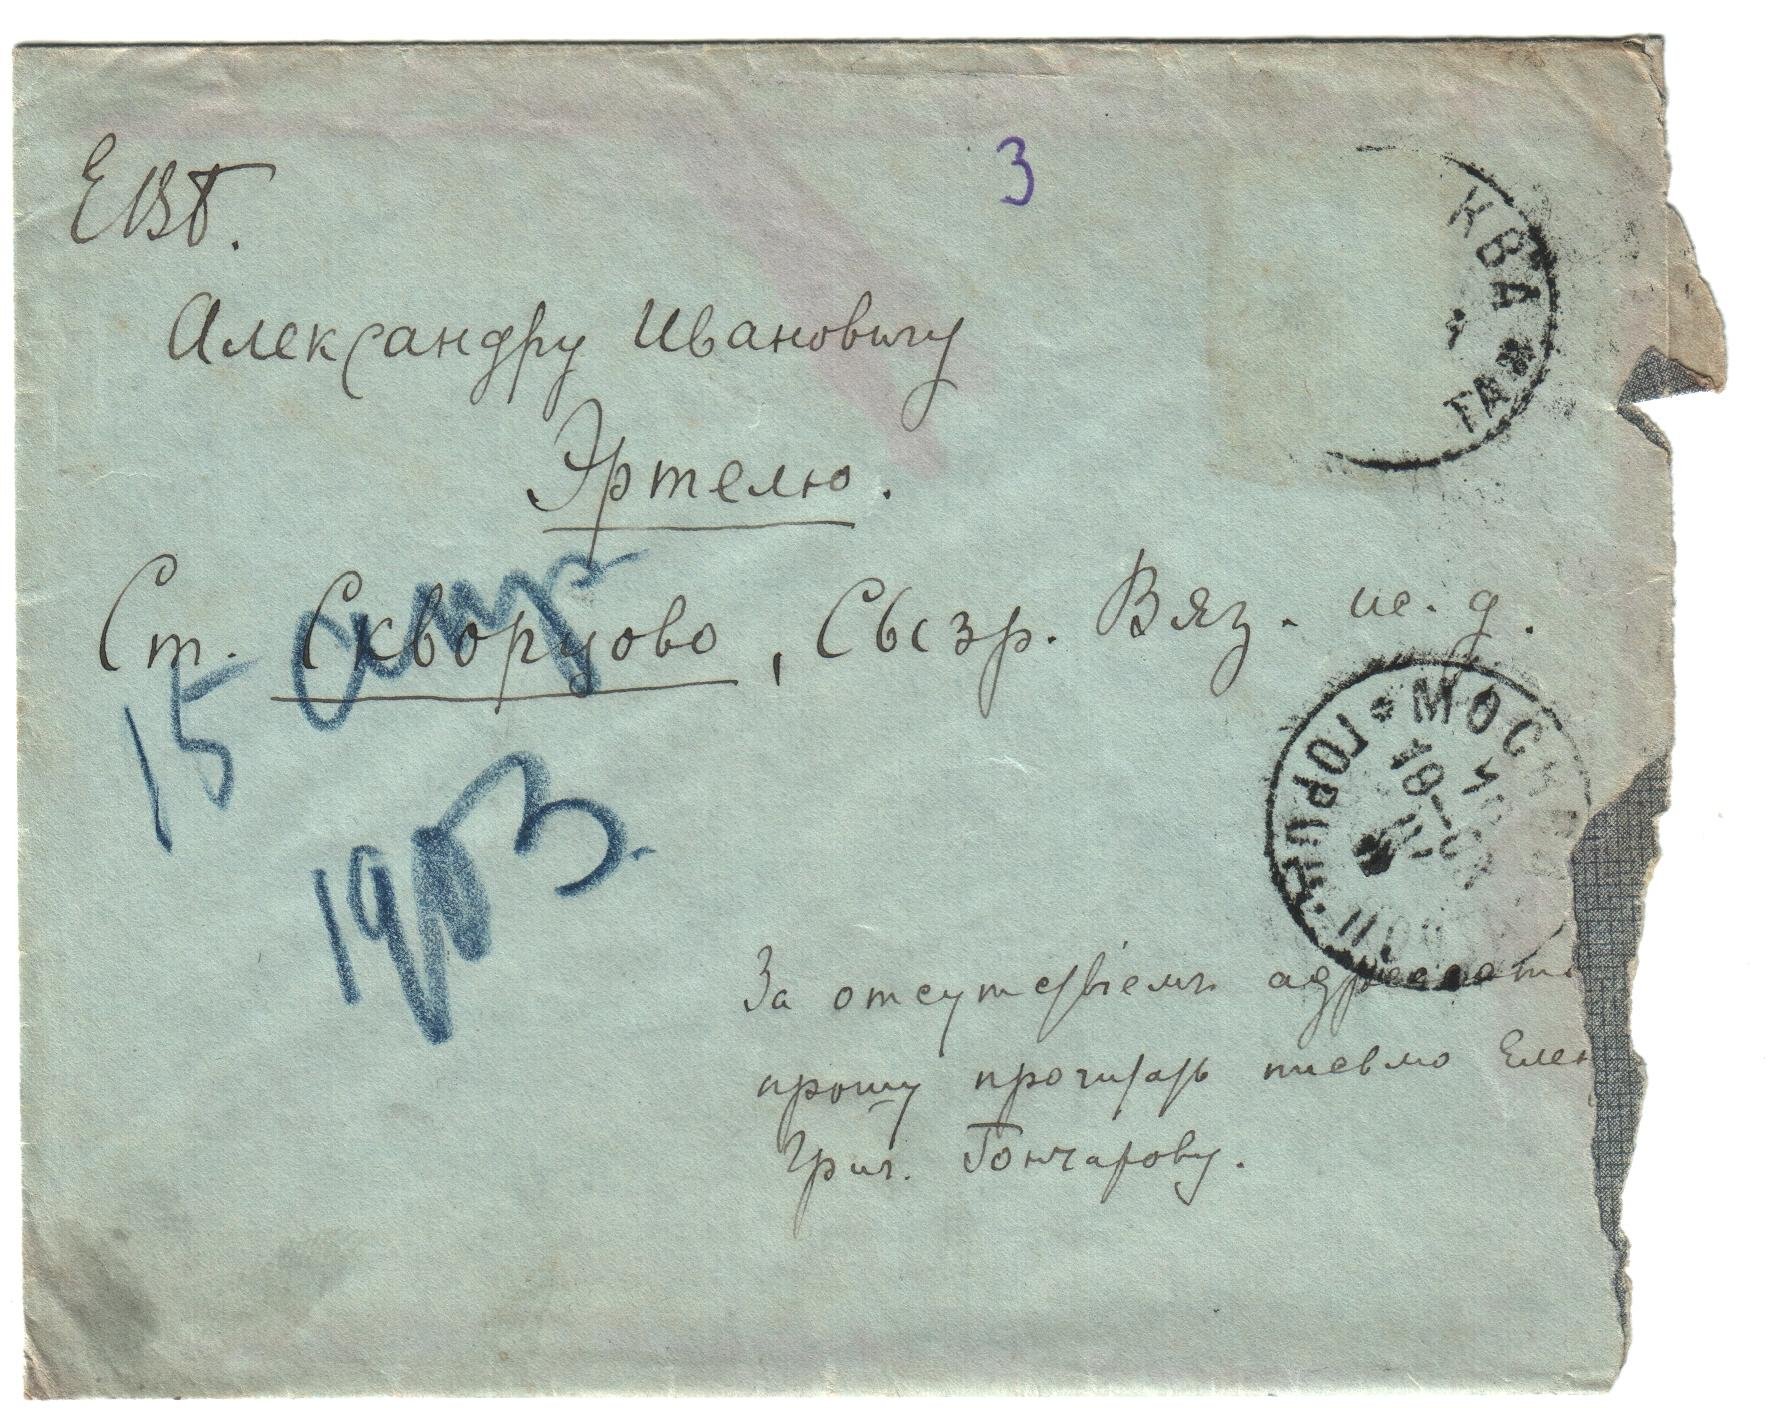 3
КВА
ЕВБ.
Александру Ивановичу
Эртелю.
Ст. Скворцово, Сызр. Вяз. ж. д.
15 Апр
1903.
МОСКВА
За отсутствіемъ адресата
прошу прочитать письмо Елен
Григ. Гончарову.